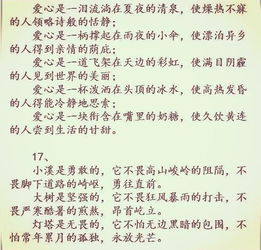 爱心是一泪流淌在夏夜的清泉，使燥热不寐
的人领略诗般的恬静；
爱心是一柄撑起在雨夜的小伞，使漂泊异乡
的人得到亲情的荫庇；
爱心是一道飞架在天边的彩虹，使满目阴霾
的人见到世界的美丽；
爱心是一杯泼洒在头顶的冰水，使高热发昏
的人得能冷静地思索；
爱心是一块衔含在嘴里的奶糖，使久饮黄连
的人尝到生活的甘甜。
17、
小溪是勇敢的，它不畏高山峻岭的阻隔，不
畏脚下道路的崎岖，勇往直前。
大树是坚强的，它不畏狂风暴雨的打击，不
畏严寒酷暑的煎熬，昂首屹立。
灯塔是无畏的，它不怕无边黑暗的包围，不
怕常年累月的孤独，永放光芒。